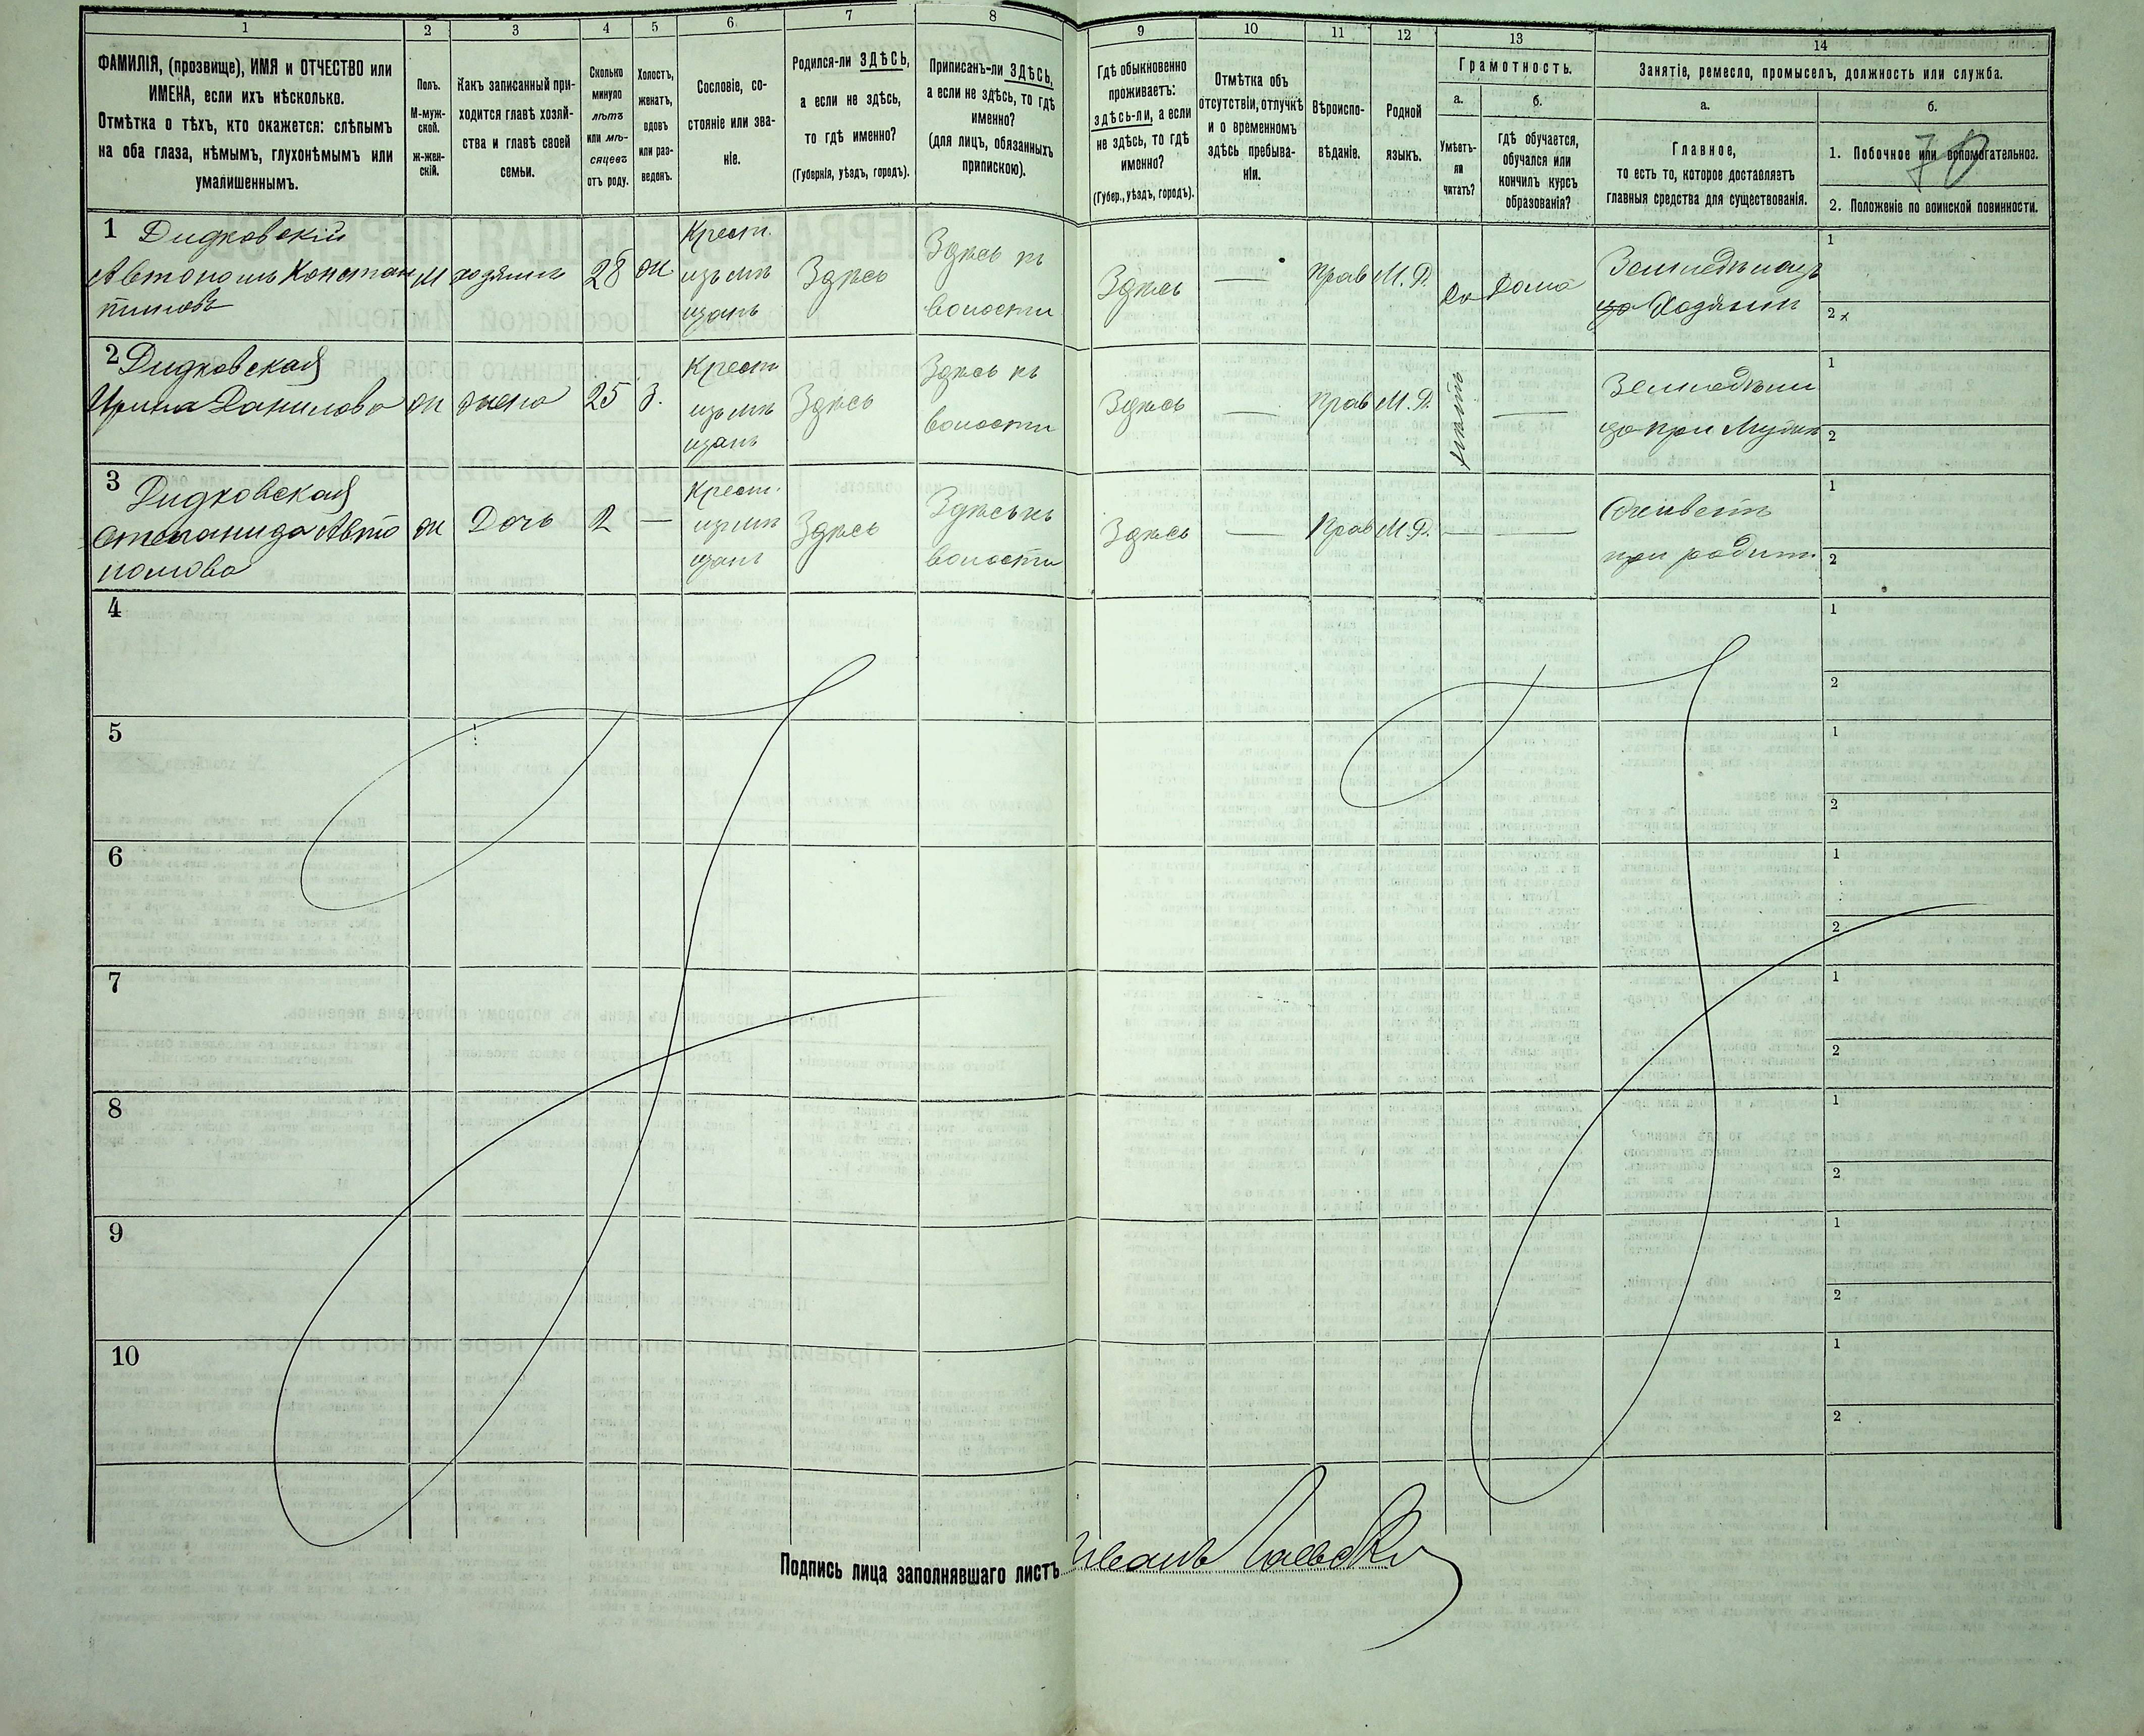 1 2 3 4 5 6 7 8 9 10 11 12 13 14
ФАМИЛІЯ, (прозвище), ИМЯ и ОТЧЕСТВО или
ИМЕНА, если ихъ нѣсколько.
Отмѣтка о тѣхъ, кто окажется: слѣпымъ
на оба глаза, нѣмымъ, глухонѣмымъ или
умалишеннымъ.
Полъ.
М-муж-
ской.
ж-жен-
скій.
Какъ записанный при-
ходится главѣ хозяй-
ства и главѣ своей
семьи.
Сколько
минуло
лѣтъ
или мѣ-
сяцевъ
отъ роду.
Холостъ,
женатъ,
вдовъ
или раз-
веденъ.
Сословіе, со-
стояніе или зва-
ніе.
Родился-ли ЗДѢСЬ,
а если не здѣсь,
то гдѣ именно?
(Губернія, уѣздъ, городъ).
Приписанъ-ли ЗДѢСЬ,
а если не здѣсь, то гдѣ
именно?
(для лицъ, обязанныхъ
припискою).
Гдѣ обыкновенно
проживаетъ:
здѣсь-ли, а если
не здѣсь, то гдѣ
именно?
(Губер., уѣздъ, городъ).
Отмѣтка объ
отсутствіи, отлучкѣ
и о временномъ
здѣсь пребыва-
ніи.
Вѣроиспо-
вѣданіе.
Родной
языкъ.
Грамотность.
а.
Умѣетъ-
ли
читать?
б.
гдѣ обучается,
обучался или
кончилъ курсъ
образованія?
Занятіе, ремесло, промыселъ, должность или служба.
а.
Главное,
то есть то, которое доставляетъ
главныя средства для существованія.
б.
70
1. Побочное или вспомогательное.
2. Положеніе по воинской повинности.
1 Дидковскій
Автономъ Констан
тиновъ
м хозяинъ 28 ж
Крест.
изъ мѣ
щанъ
Здѣсь
Здѣсь къ
волости
Здѣсь — Прав М. Р. Да Дома
Земледѣлец
Хозяинъ
1
2 х
2 Дидковская
Ирина Данилова
ж жена 25 З.
Крест
изъ мѣ
щанъ
Здѣсь
Здѣсь къ
волости
Здѣсь — Прав М. Р. нѣтъ —
1
2
3 Дидковская
Степанида Авто
номова
ж Дочь 2 —
Крест.
изъ мѣ
щанъ
Здѣсь
Здѣсь къ
волости
Здѣсь — Прав М. Р. — —
при родит.
1
2
4
1
2
5
1
2
6
1
2
7
1
2
8
1
2
9
1
2
10
1
2
Подпись лица заполнявшаго листъ Иванъ